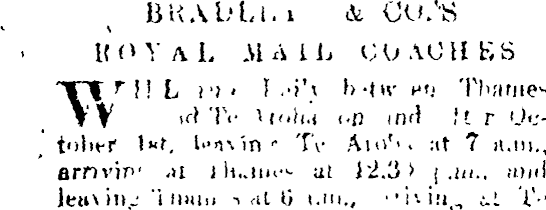 BRADLEY & CO.'S
ROYAL MAIL COACHES
WILL run Daily between Thames
and Te Aroha on and after Oc-
tober 1st, leaving Te Aroha at 7 a.m.,
arriving at Thames at 12.30 p.m., and
leaving Thames at 6 a.m., arriving at Te